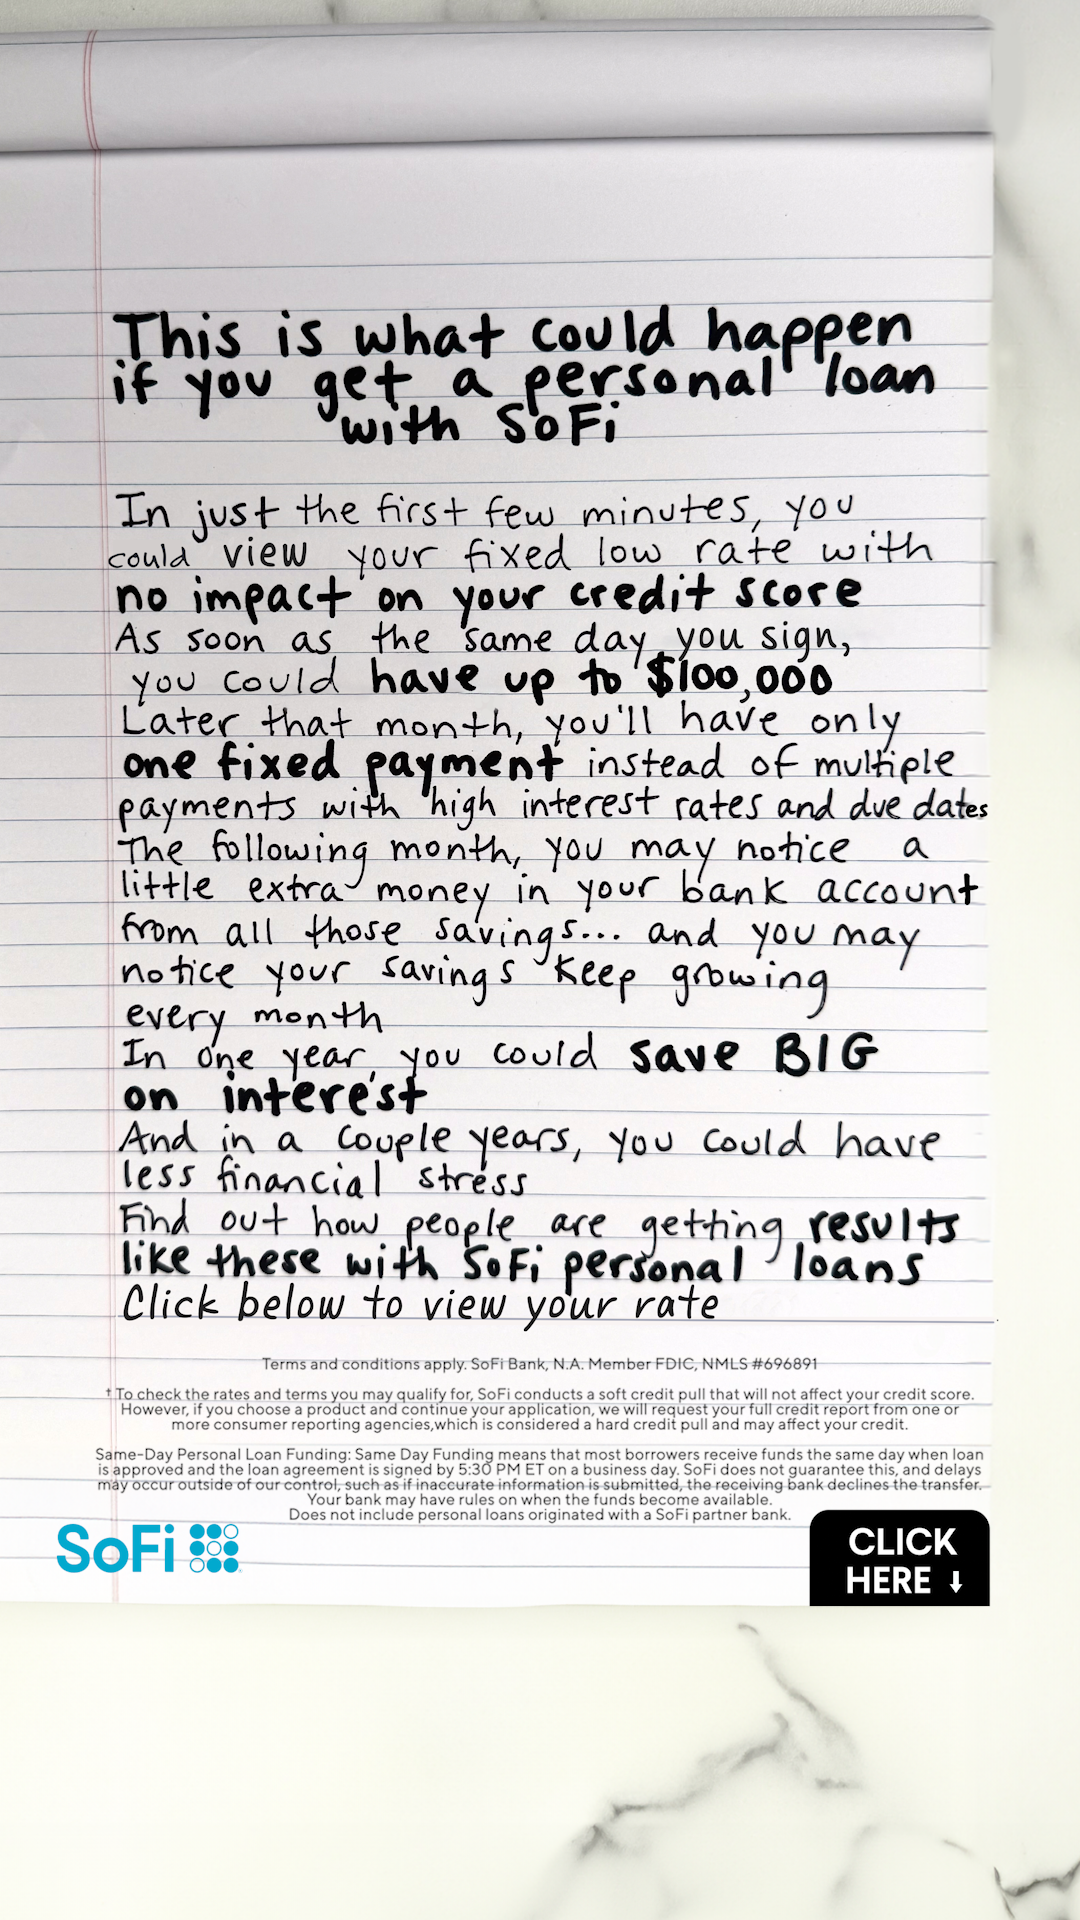 This is what could happen
if you get a personal loan
with SoFi
In just the first few minutes, you
could view your fixed low rate with
no impact on your credit score
As soon as the same day you sign,
you could have up to $100,000
Later that month, you'll have only
one fixed payment instead of multiple
payments with high interest rates and due dates
The following month, you may notice a
little extra money in your bank account
from all those savings... and you may
notice your savings keep growing
every month
In one year, you could save BIG
on interest
And in a couple years, you could have
less financial stress
Find out how people are getting results
like these with SoFi personal loans
Click below to view your rate
Terms and conditions apply. SoFi Bank, N.A. Member FDIC, NMLS #696891
† To check the rates and terms you may qualify for, SoFi conducts a soft credit pull that will not affect your credit score.
However, if you choose a product and continue your application, we will request your full credit report from one or
more consumer reporting agencies,which is considered a hard credit pull and may affect your credit.
Same-Day Personal Loan Funding: Same Day Funding means that most borrowers receive funds the same day when loan
is approved and the loan agreement is signed by 5:30 PM ET on a business day. SoFi does not guarantee this, and delays
may occur outside of our control, such as if inaccurate information is submitted, the receiving bank declines the transfer.
Your bank may have rules on when the funds become available.
Does not include personal loans originated with a SoFi partner bank.
SoFi
CLICK
HERE ↓